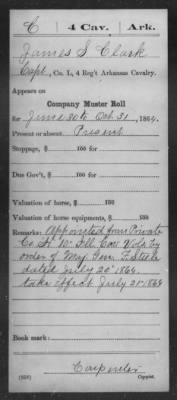 C 4 Cav. Ark.
James S Clark
Capt, Co. L, 4 Reg't Arkansas Cavalry.
Appears on
Company Muster Roll
for June 30 to Oct 31, 1864.
Present or absent Present
Stoppage, $ 100 for
Due Gov't, $ 100 for
Valuation of horse, $ 100
Valuation of horse equipments, $ 100
Remarks: Appointed from Private
Co. H 10" Ill Cav Vols by
order of Maj Gen F Steele
dated July 20" 1864.
take effect July 21" 1864
Book mark:
Carpenter
(858) Copyist.